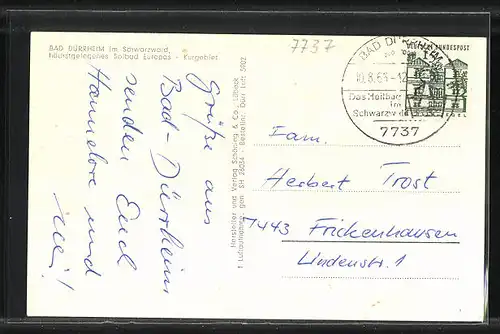 BAD DÜRRHEIM im Schwarzwald,
höchstgelegenes Solbad Europas - Kurgebiet
7737
Grüße aus
Bad-Dürrheim
senden Euch
Hannelore und
Hersteller und Verlag Schöning & Co., Lübeck
† Luftaufnahme, gen. SH 25054 - Bestellnr. Düri Luft 5902
DEUTSCHE BUNDESPOST
BAD DÜRRHEIM
Das Heilbad
im
Schwarzwald
7737
Fam.
Herbert Trost
7443 Frickenhausen
Lindenstr. 1